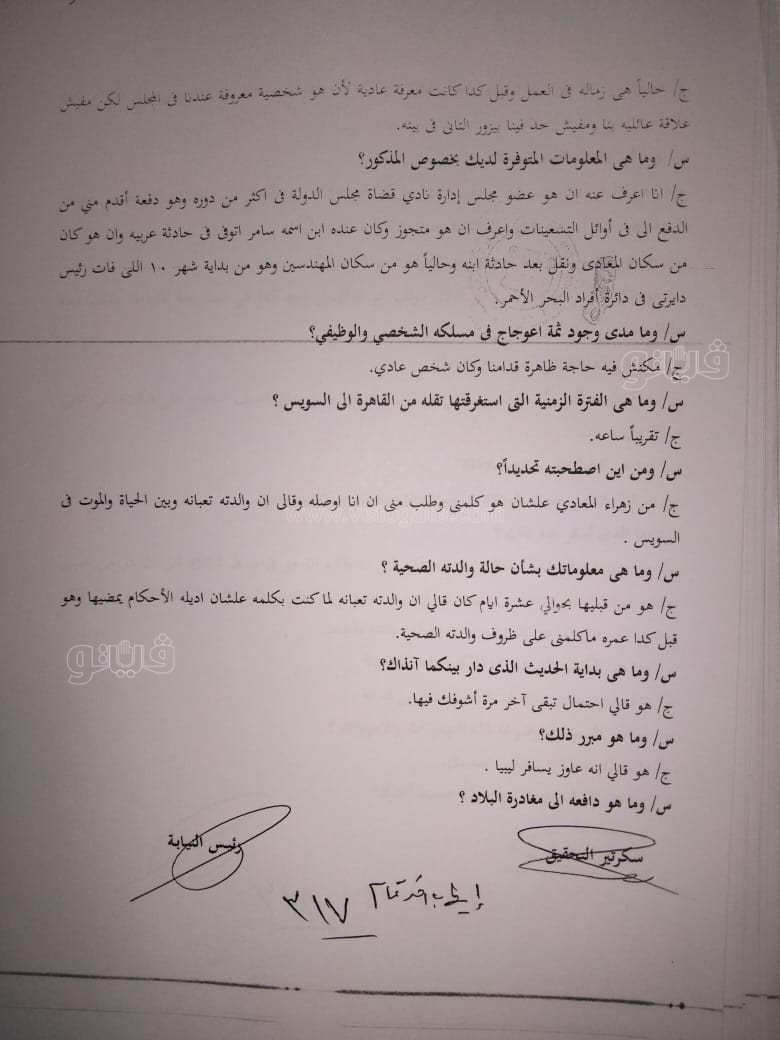 ج/ حالياً هى زماله فى العمل وقبل كدا كانت معرفة عادية لأن هو شخصية معروفة عندنا فى المجلس لكن مفيش
علاقة عائليه بنا ومفيش حد فينا بيزور التانى فى بيته.
س/ وما هى المعلومات المتوفرة لديك بخصوص المذكور؟
ج/ انا اعرف عنه ان هو عضو مجلس إدارة نادي قضاة مجلس الدولة فى اكثر من دوره وهو دفعة أقدم مني من
الدفع الى فى أوائل التسعينات واعرف ان هو متجوز وكان عنده ابن اسمه سامر اتوفى فى حادثة عربيه وان هو كان
من سكان المعادى ونقل بعد حادثة ابنه وحالياً هو من سكان المهندسين وهو من بداية شهر ١٠ اللى فات رئيس
دايرتى فى دائرة أفراد البحر الأحمر.
س/ وما مدى وجود ثمة اعوجاج فى مسلكه الشخصي والوظيفي؟
ج/ مكنش فيه حاجة ظاهرة قدامنا وكان شخص عادي.
ڤيتو
س/ وما هى الفترة الزمنية التى استغرقتها تقله من القاهرة الى السويس ؟
ج/ تقريباً ساعه.
س/ ومن اين اصطحبته تحديداً؟
ج/ من زهراء المعادي علشان هو كلمنى وطلب منى ان انا اوصله وقالى ان والدته تعبانه وبين الحياة والموت فى
www.vetogate.com
السويس .
س/ وما هى معلوماتك بشأن حالة والدته الصحية ؟
ج/ هو من قبليها بحوالي عشرة ايام كان قالي ان والدته تعبانه لما كنت بكلمه علشان اديله الأحكام يمضيها وهو
قبل كدا عمره ماكلمنى على ظروف والدته الصحية.
ڤيتو
س/ وما هى بداية الحديث الذى دار بينكما آنذاك؟
ج/ هو قالي احتمال تبقى آخر مرة أشوفك فيها.
س/ وما هو مبرر ذلك؟
ج/ هو قالي انه عاوز يسافر ليبيا .
س/ وما هو دافعه الى مغادرة البلاد ؟
سكرتير التحقيق
رئيس النيابة
٣١٧